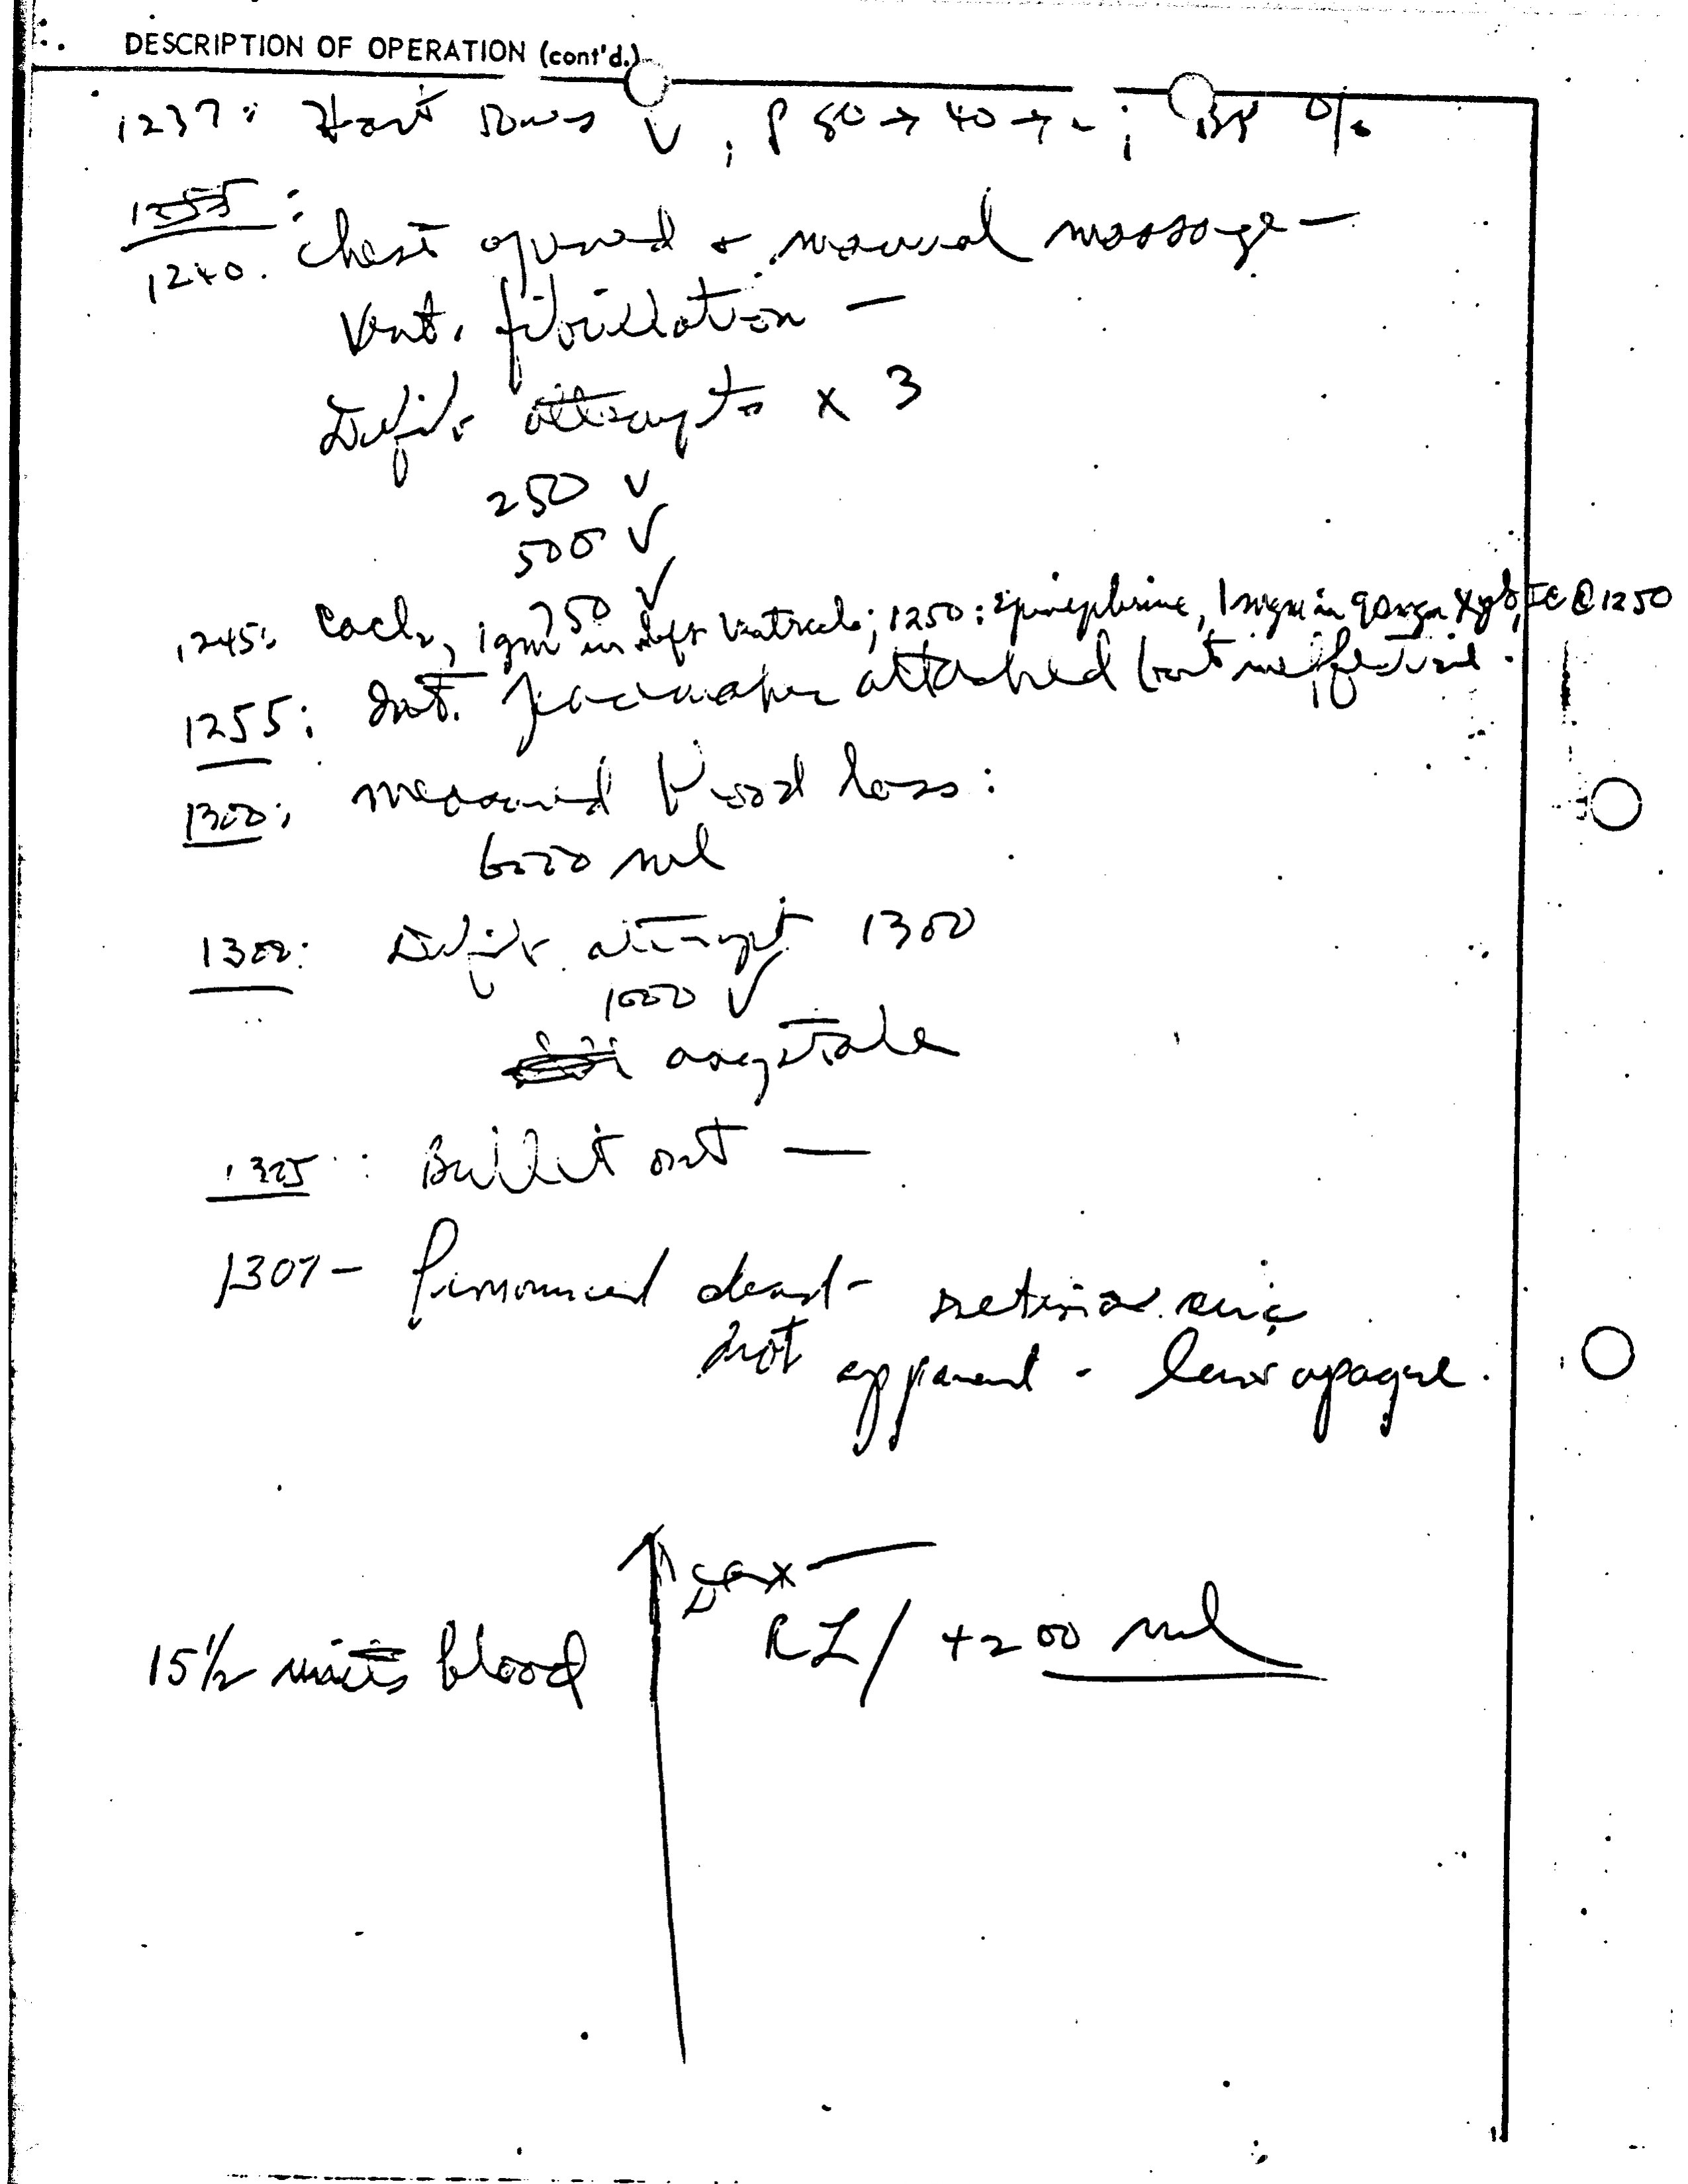 DESCRIPTION OF OPERATION (cont'd.)
1237: Heart slows ↓, P 80 → 40 → ; BP 0/0
1255:
1240. Chest opened + manual massage —
Vent. fibrillation —
Defib. attempts x 3
250 v
500 v
750 v
1245: CaCl₂, 1 gm in left ventricle; 1250: epinephrine, 1 mgm in 9 of IC @ 1250
1255: Int. Pacemaker attached but ineffective.
1300: measured blood loss:
6000 ml
1300: Defib. attempt 1300
1000 v
asystole
1305: Bullet out —
1307 - Pronounced dead - retinal
not apparent - lens opaque.
Dex —
15½ units blood RL / 4200 ml